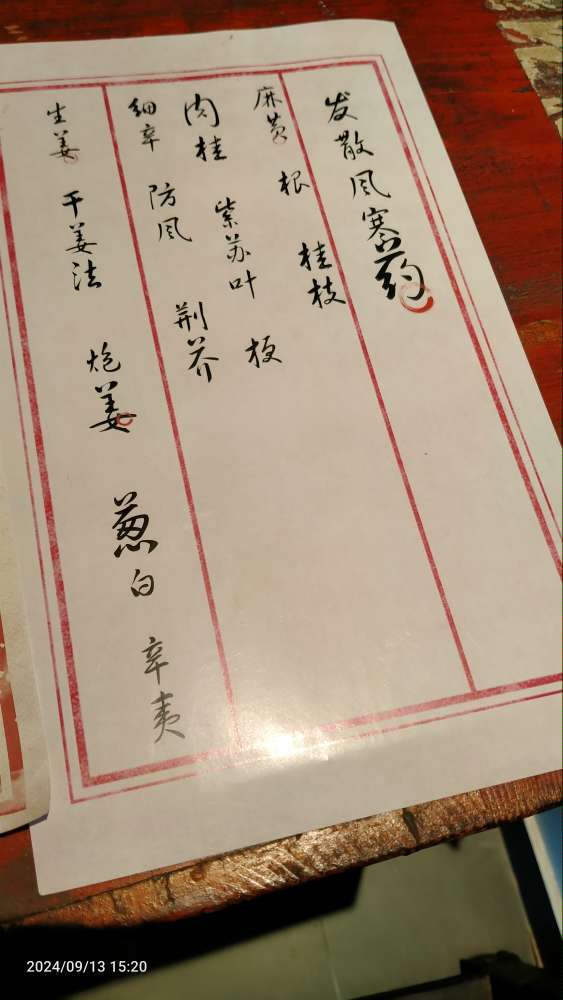 发散风寒药
麻黄 根 桂枝
肉桂 紫苏叶 梗
细辛 防风 荆芥
生姜 干姜法 炮姜 葱白 辛夷
2024/09/13 15:20